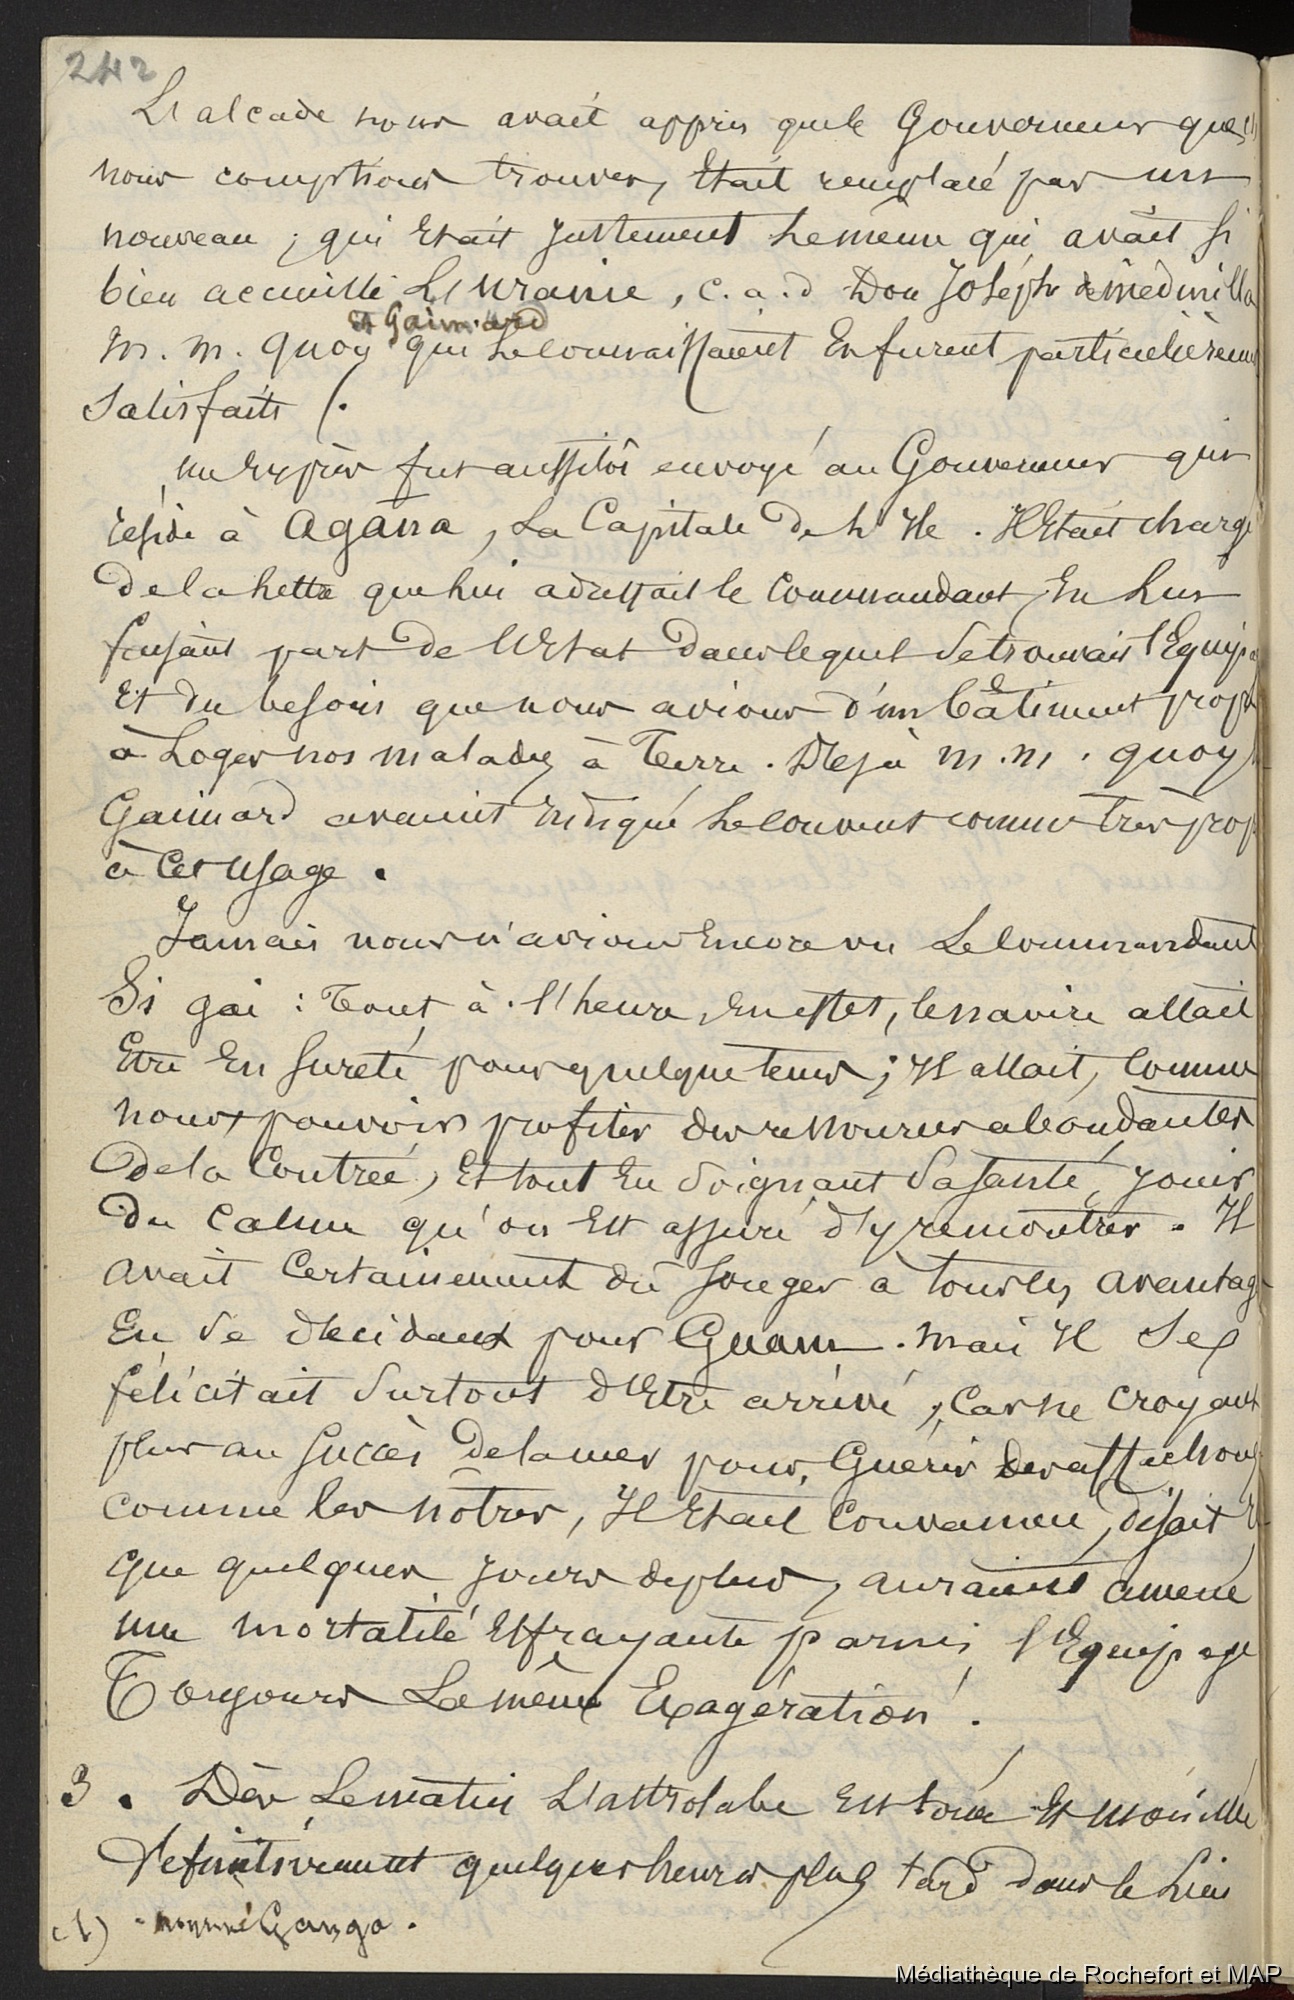 242
L'alcade nous avait appris que le Gouverneur que
nous comptions trouver, Etait remplacé par un
nouveau ; qui Etait justement le même qui avait si
bien accueilli L'Uranie, c. a. d Don Joseph de médinilla
et Gaimard
m. m. quoy qui le connaissaient En furent particulièrem
Satisfaits.
un Exprès fut aussitôt envoyé au Gouverneur qui
réside à Agana, La Capitale De L'Ile. Il Etait chargé
De la Lettre que lui adressait le Commandant, En Lui
faisant part De l'Etat Dans lequel Se trouvait l'Equipa
Et du besoin que nous avions d'un bâtiment propre
à Loger nos malades à Terre. Déjà m. m. quoy
Gaimard avaient indiqué Le Couvent comme très prop
à Cet Usage.
Jamais nous n'avions Encore vu Le Commandant
Si gai : Tout à l'heure, En effet, le navire allait
Etre En Sureté pour quelque tems ; Il allait, Comme
nous pouvoir profiter des ressources abondantes
De la Contrée, Et tout En Soignant Sa Santé, Jouir
Du Calme qu'on Est assuré d'y rencontrer. Il
avait Certainement dû Songer à tous les avantag
En Se décidant pour Guam. mais Il Se
félicitait Surtout d'Etre arrivé, Car ne croyant
plus au Succès De la mer pour Guérir des affections
comme les nôtres, Il Etait Convaincu, disait Il
que quelques Jours de plus, auraient amené
une mortalité Effrayante parmi l'Equipage
Toujours La même Exagération.
3. Dès Le matin L'astrolabe Est toué Et mouillé
Définitivement quelques heures plus tard Dans le Lieu
(1) nommé Gango.
Médiathèque de Rochefort et MAP